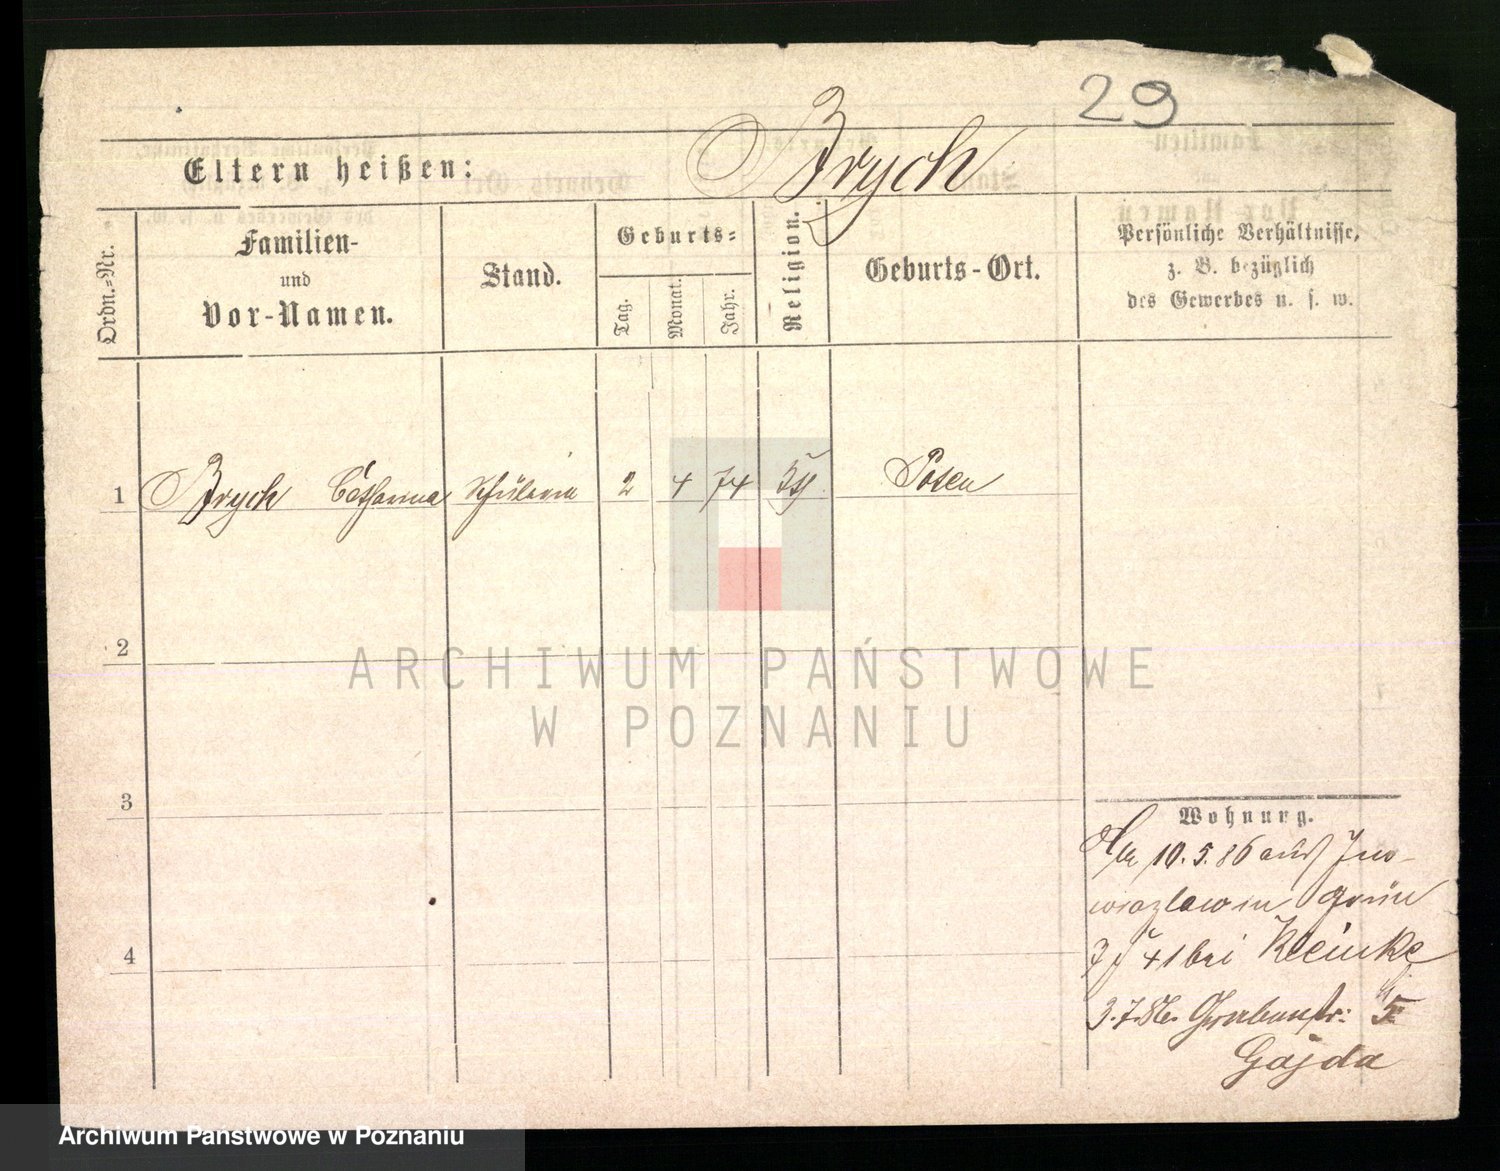 29
Eltern heißen: Brych
Ordn.-Nr.
Familien-
und
Vor-Namen.
Stand.
Geburts-
Tag.
Monat.
Jahr.
Religion.
Geburts-Ort.
Persönliche Verhältnisse,
z. B. bezüglich
des Gewerbes u. s. w.
1 Brych Catharina Schülerin 2 4 74 Kth. Posen
2
3
4
Wohnung.
10.5.86 aus Ino-
wrazlaw in
41 bei Reinke
3.7.86. Grabenstr: 5
Gajda
ARCHIWUM PAŃSTWOWE
W POZNANIU
Archiwum Państwowe w Poznaniu